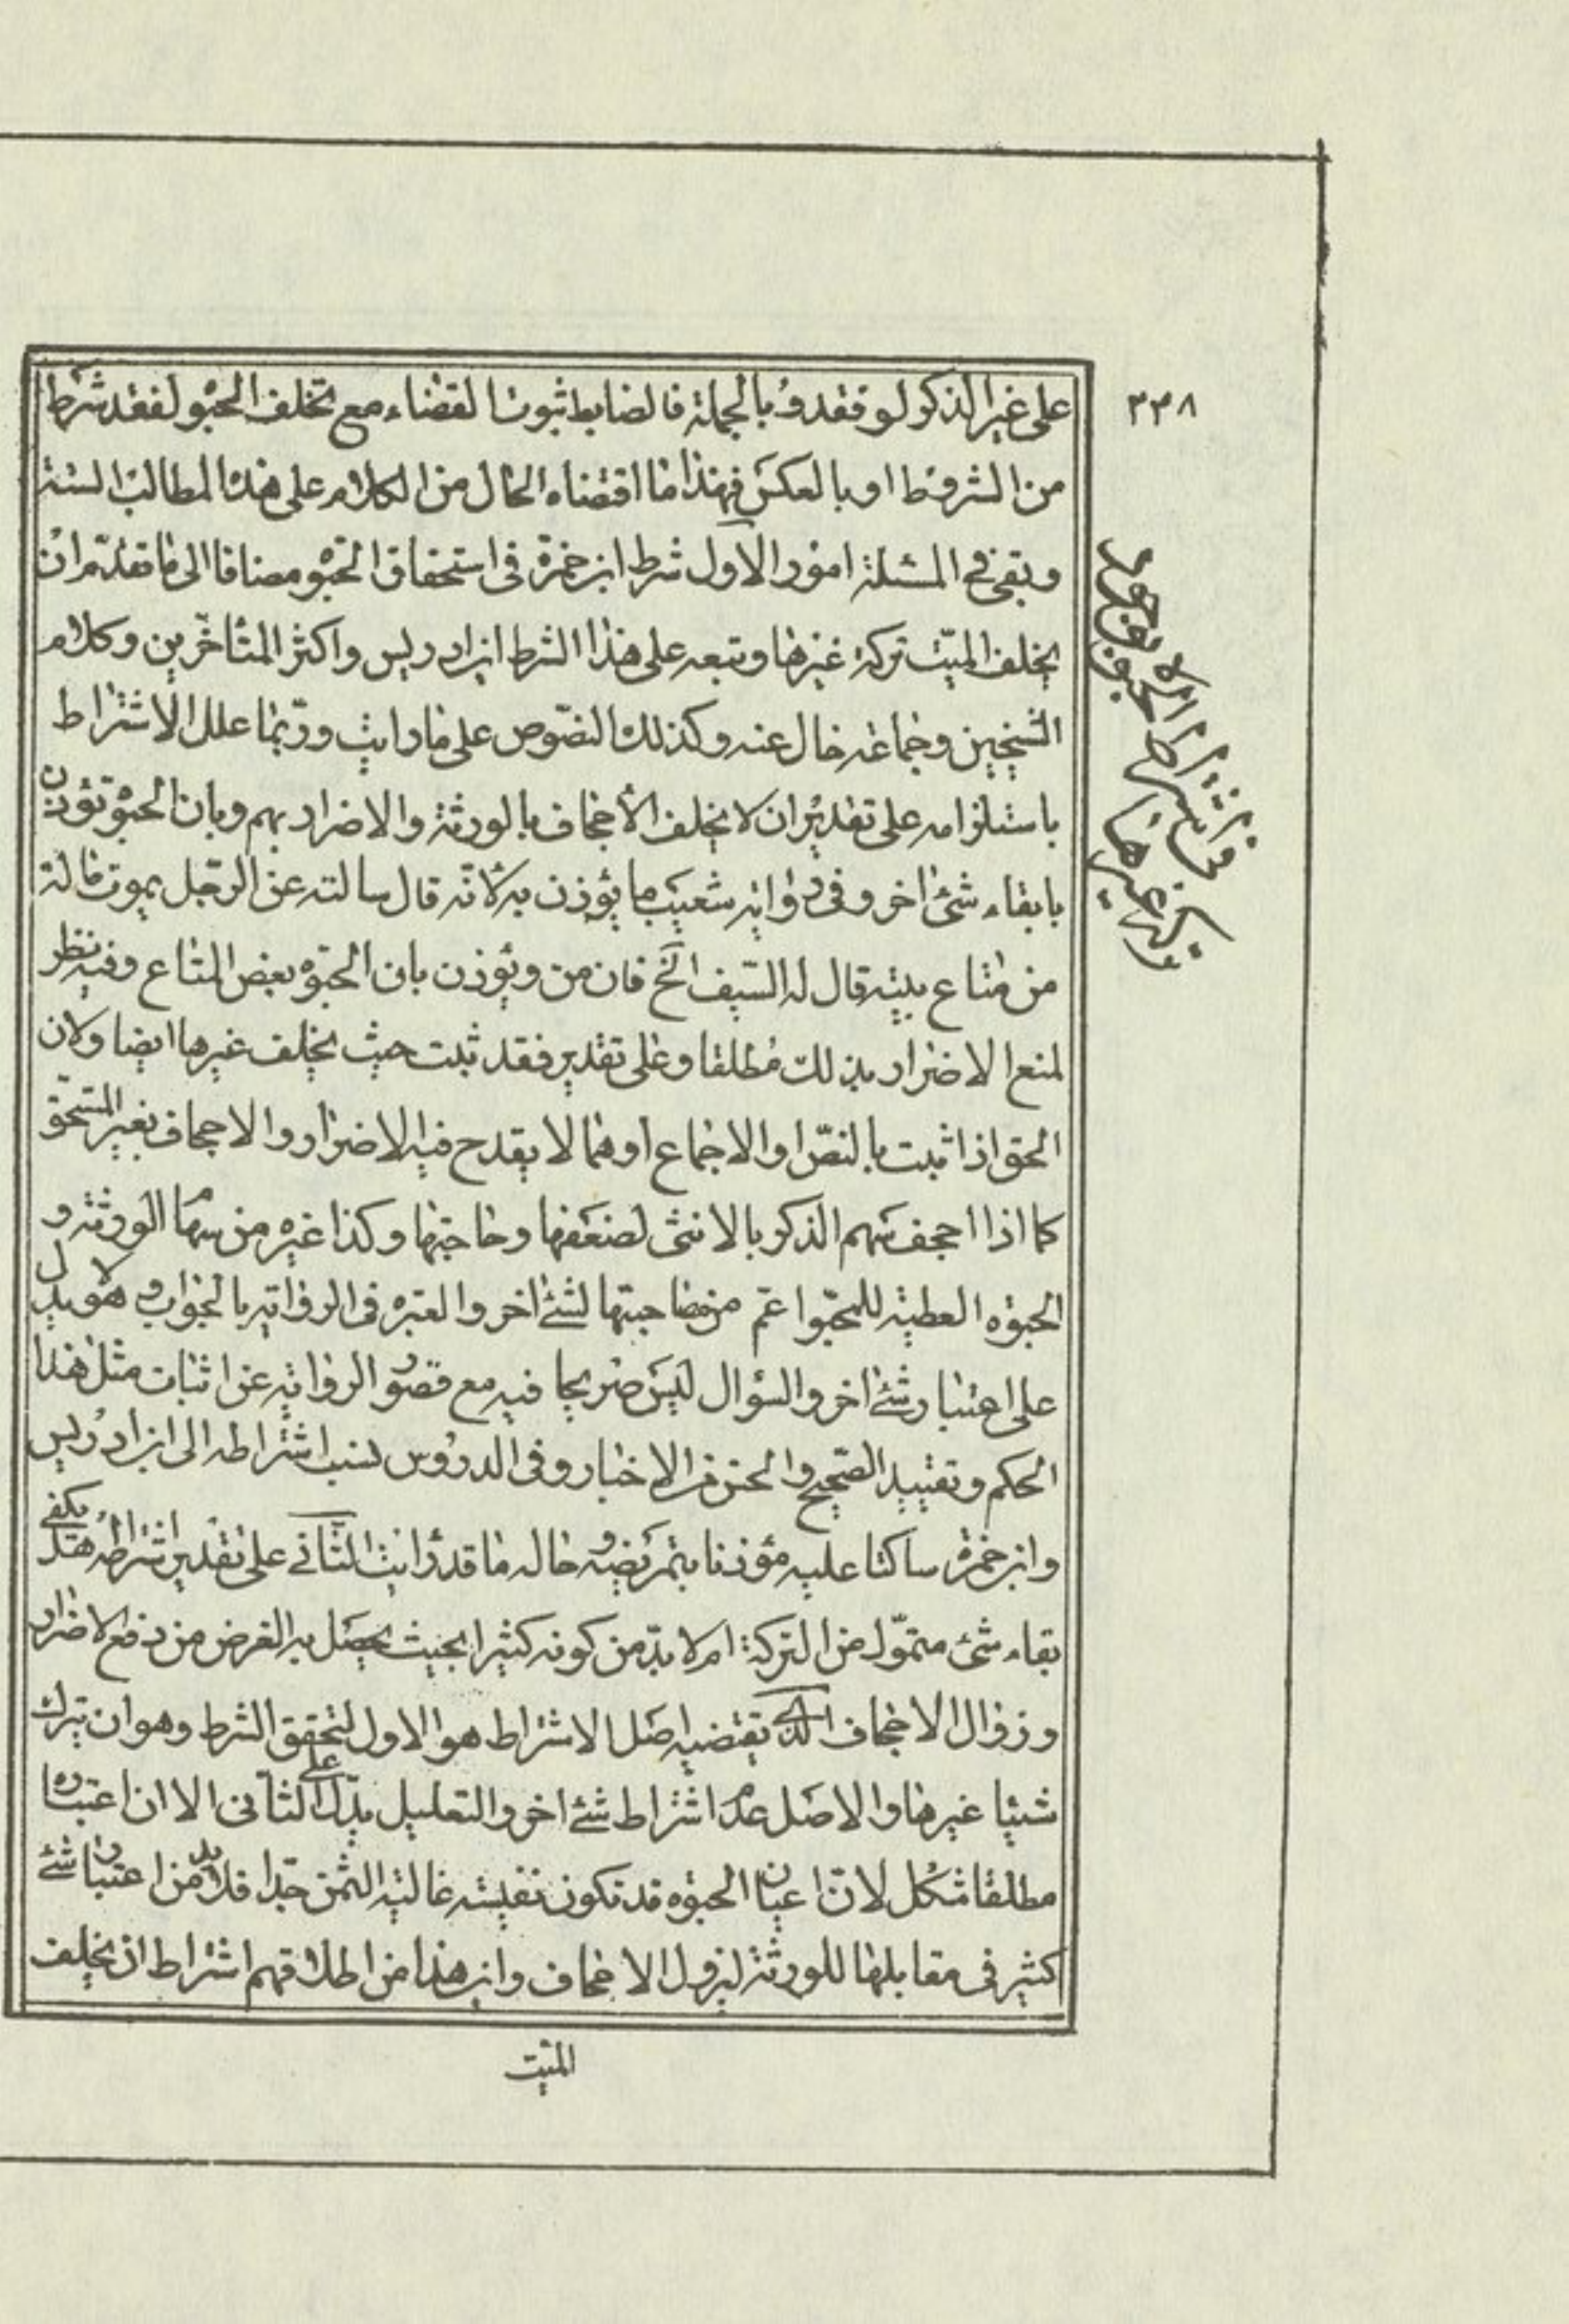 ٣٣٨
على غير الذكور لو فقدوا و بالجملة فالضابط ثبوت القضاء مع تخلف الحبو لفقد شرط
من الشروط او بالعكس فهذا ما اقتضاه الحال من الكلام على هذه المطالب الستة
وبقي في المسئلة امور الاول شرط ابن حمزة في استحقاق الحبوه مضافا الى ما تقدم ان
يخلف الميت تركة غيرها وتبعه على هذا الشرط ابن ادريس واكثر المتأخرين وكلام
الشيخين وجماعة خال عنه وكذلك النصوص على ما رأيت وربما علل الاشتراط
باستلزامه على تقدير ان لا يخلف الاجحاف بالورثة والاضرار بهم وبان الحبوة تؤذن
بابقاء شئ اخر وفي رواية شعيب ما يؤذن به لانه قال سالته عن الرجل يموت ماله
من متاع بيته قال له السيف الخ فان من ويؤذن بان الحبوه بعض المتاع وفيه نظر
لمنع الاضرار بذلك مطلقا وعلى تقديره فقد ثبت حيث يخلف غيرها ايضا ولان
الحق اذا ثبت بالنص او الاجماع او هما لا يقدح فيه الاضرار والاجحاف بغير المستحق
كما اذا احجف سهم الذكر بالانثى لضعفها وحاجتها وكذا غيره من سهام الورثة و
الحبوه العطية للمحبو اعم من مصاحبتها لشئ اخر والعبره في الرواية بالجواب وهو لا يدل
على اعتبار شئ اخر والسؤال ليس صريحا فيه مع قصور الرواية عن اثبات مثل هذا
الحكم وتقييد الصحيح والحسن من الاخبار وفي الدروس نسب اشتراطه الى ابن ادريس
وابن حمزة ساكتا عليه مؤذنا بتمريضه وحاله ما قد رايت الثاني على تقدير اشتراطه هل يكفي
بقاء شئ متمول من التركة ام لا بد من كونه كثيرا بحيث يحصل به الغرض من دفع الاضرار
و زوال الاجحاف الذي يقتضيه اصل الاشتراط هو الاول لتحقق الشرط وهو ان يترك
شيئا غيرها والاصل عدم اشتراط شئ اخر والتعليل يدل على الثاني الا ان اعتباره
مطلقا مشكل لان اعيان الحبوه قد تكون نفيسة غالية الثمن جدا فلا بد من اعتبار شئ
كثير في مقابلها للورثة ليزول الاجحاف واين هذا من اطلاقهم اشتراط ان يخلف
الميت